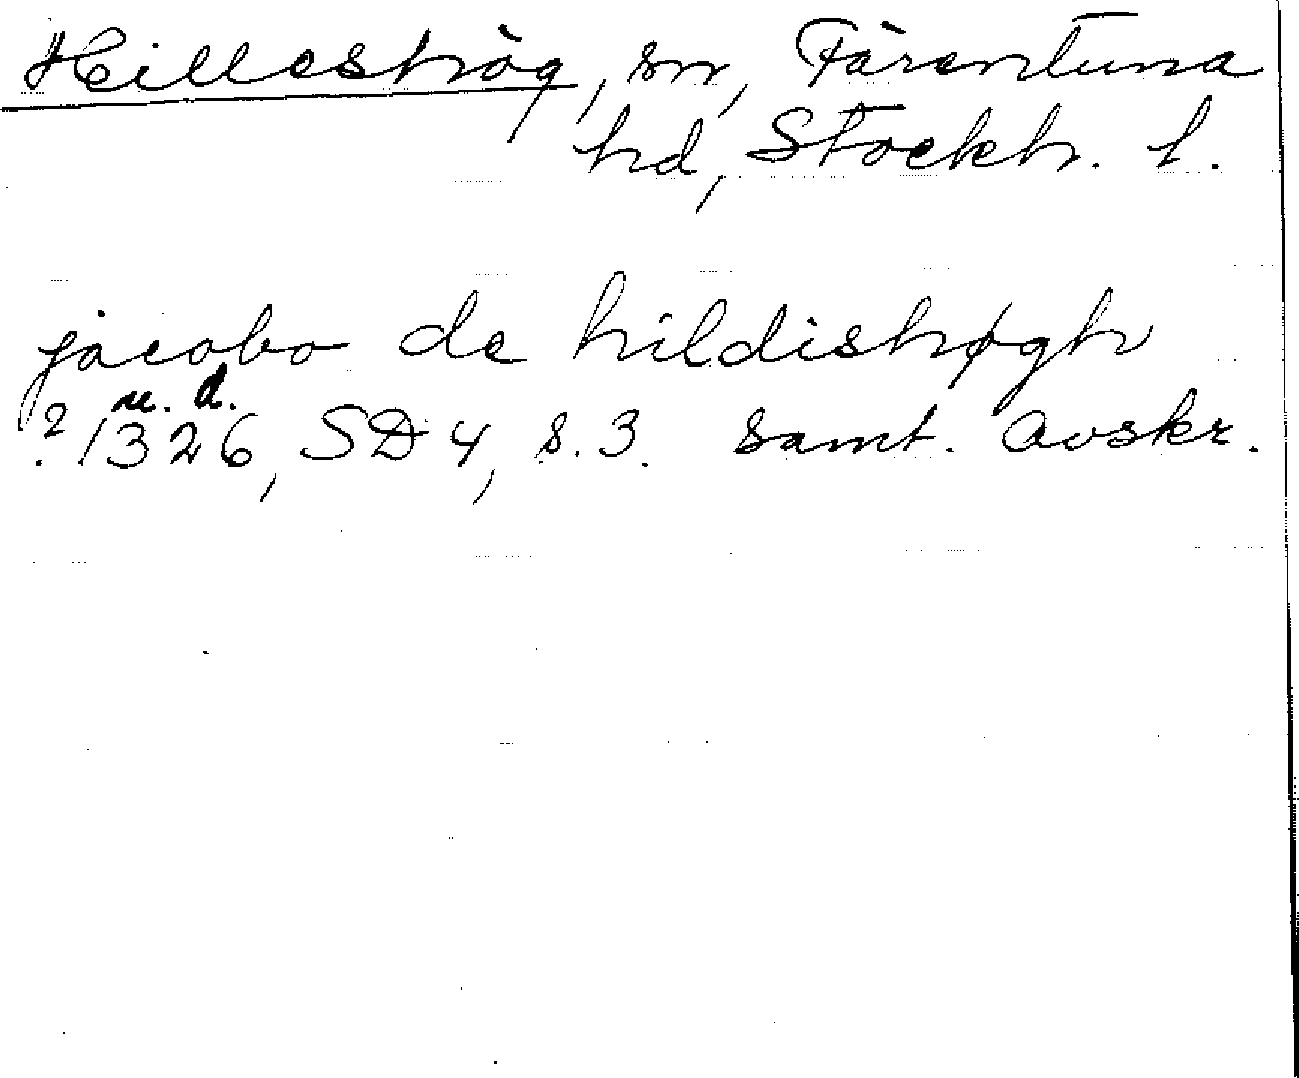 Hilleshög, sn, Färentuna
hd, Stockh. l.
jacobo de hildishøgh
u. d.
? 1326, SD 4, s. 3. samt. avskr.